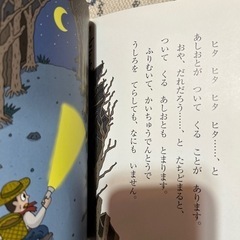 ヒタ　ヒタ　ヒタ　ヒタ……、と
あしおとが　ついて　くる　ことが　あります。
おや、だれだろう……、と　たちどまると、
ついて　くる　あしおとも　とまります。
ふりむいて、かいちゅうでんとうで
うしろを　てらしても、なにも　いません。